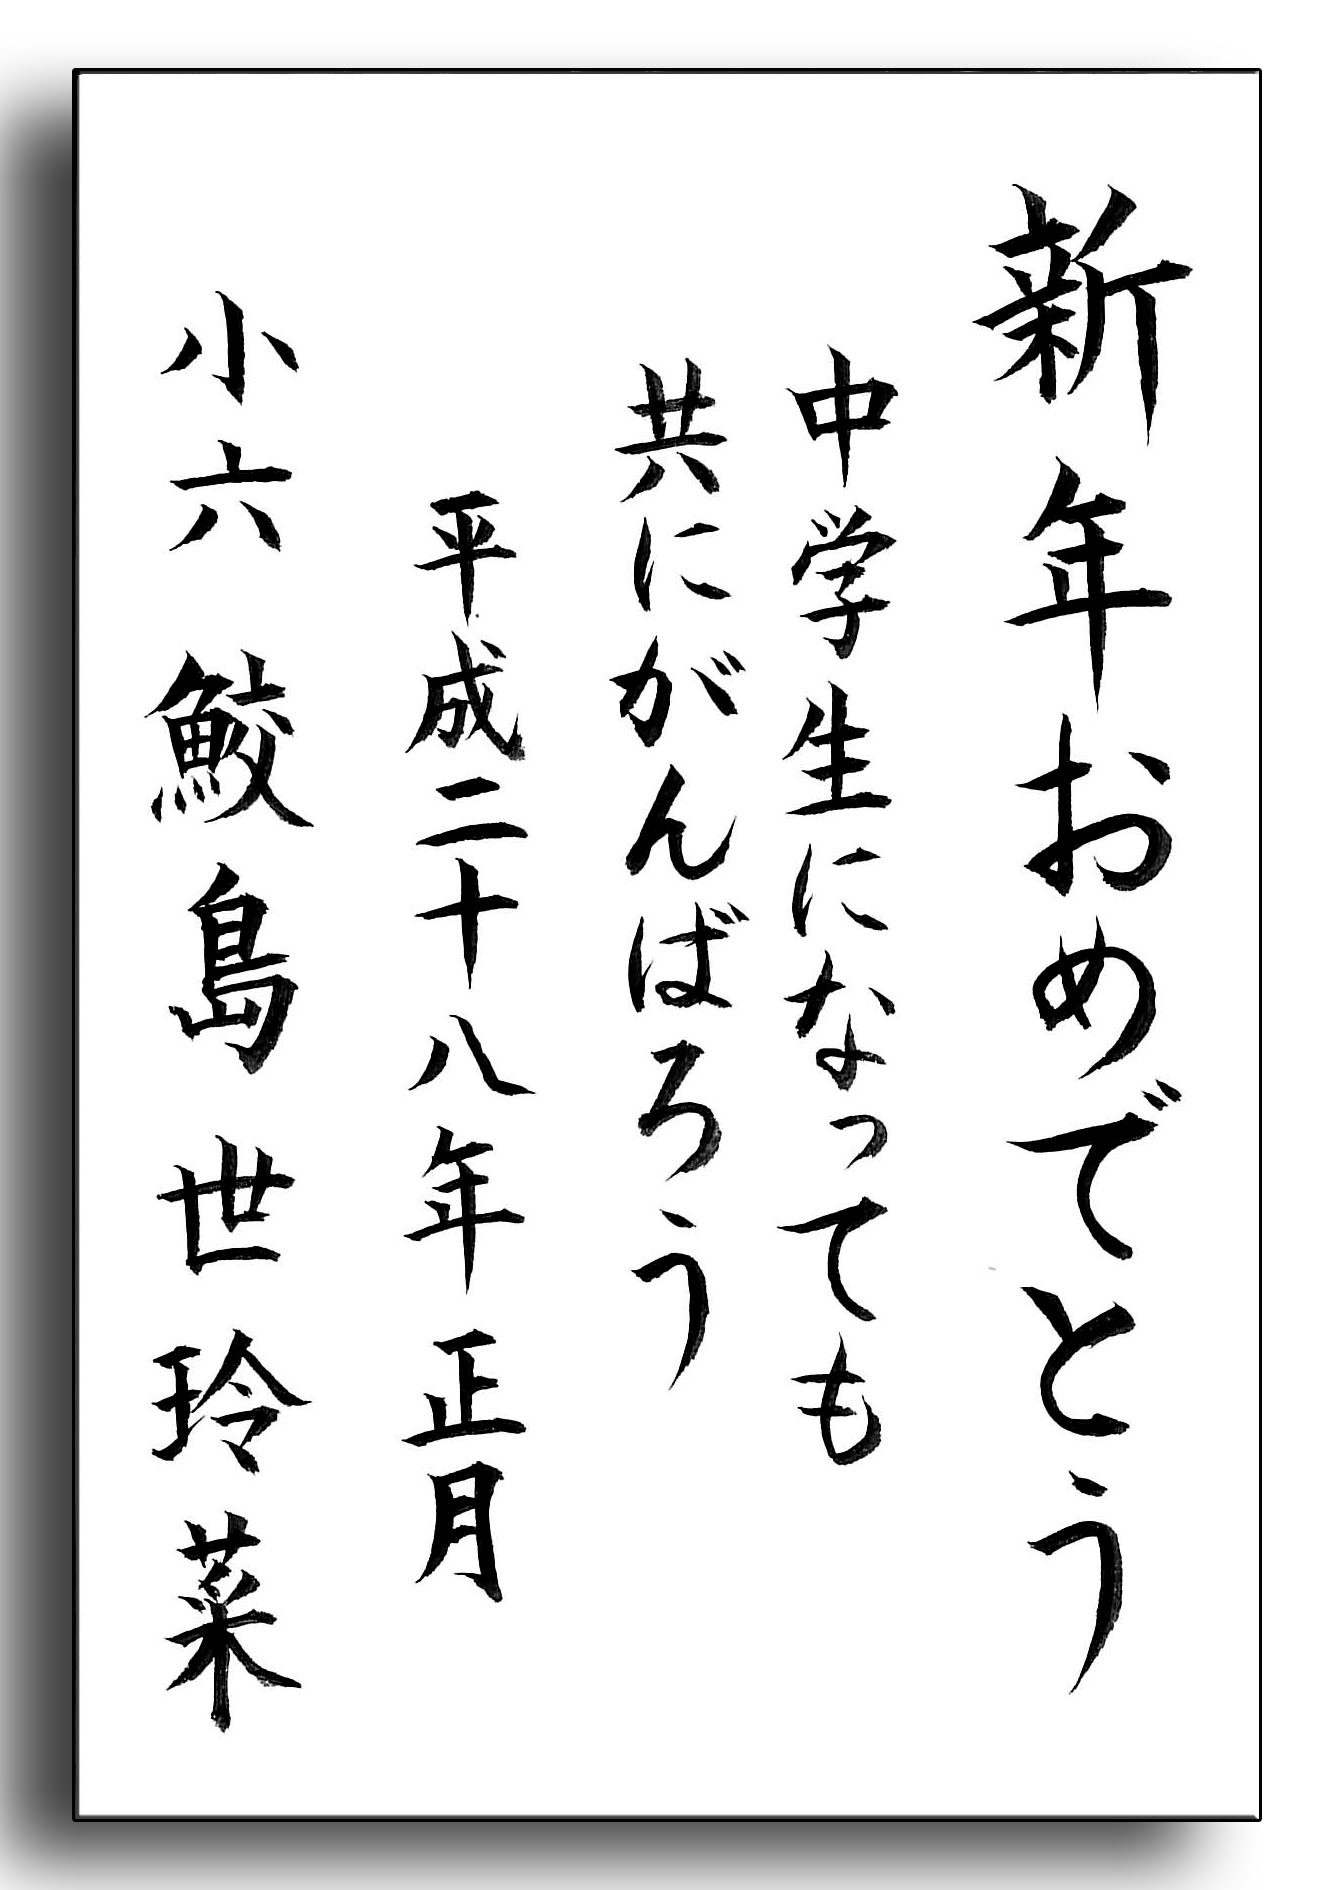 新年おめでとう
中学生になっても
共にがんばろう
平成二十八年正月
小六 鮫島世玲菜